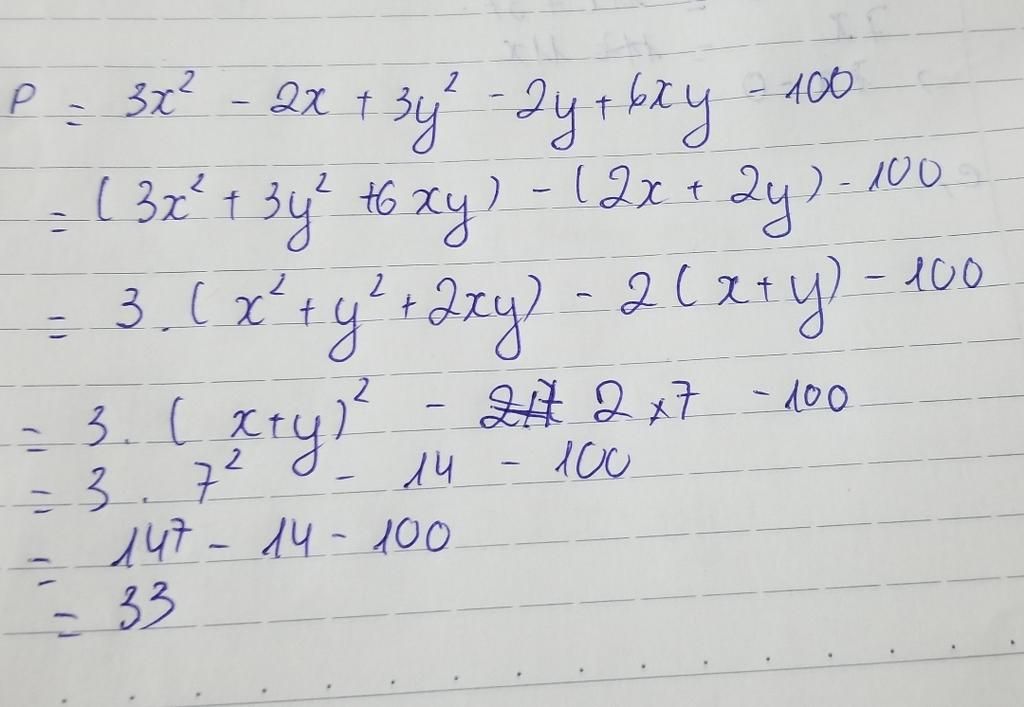 P = 3x² - 2x + 3y² - 2y + 6xy - 100
= (3x² + 3y² + 6xy) - (2x + 2y) - 100
= 3.(x² + y² + 2xy) - 2(x+y) - 100
= 3.(x+y)² - 2x7 - 100
= 3.7² - 14 - 100
= 147 - 14 - 100
= 33